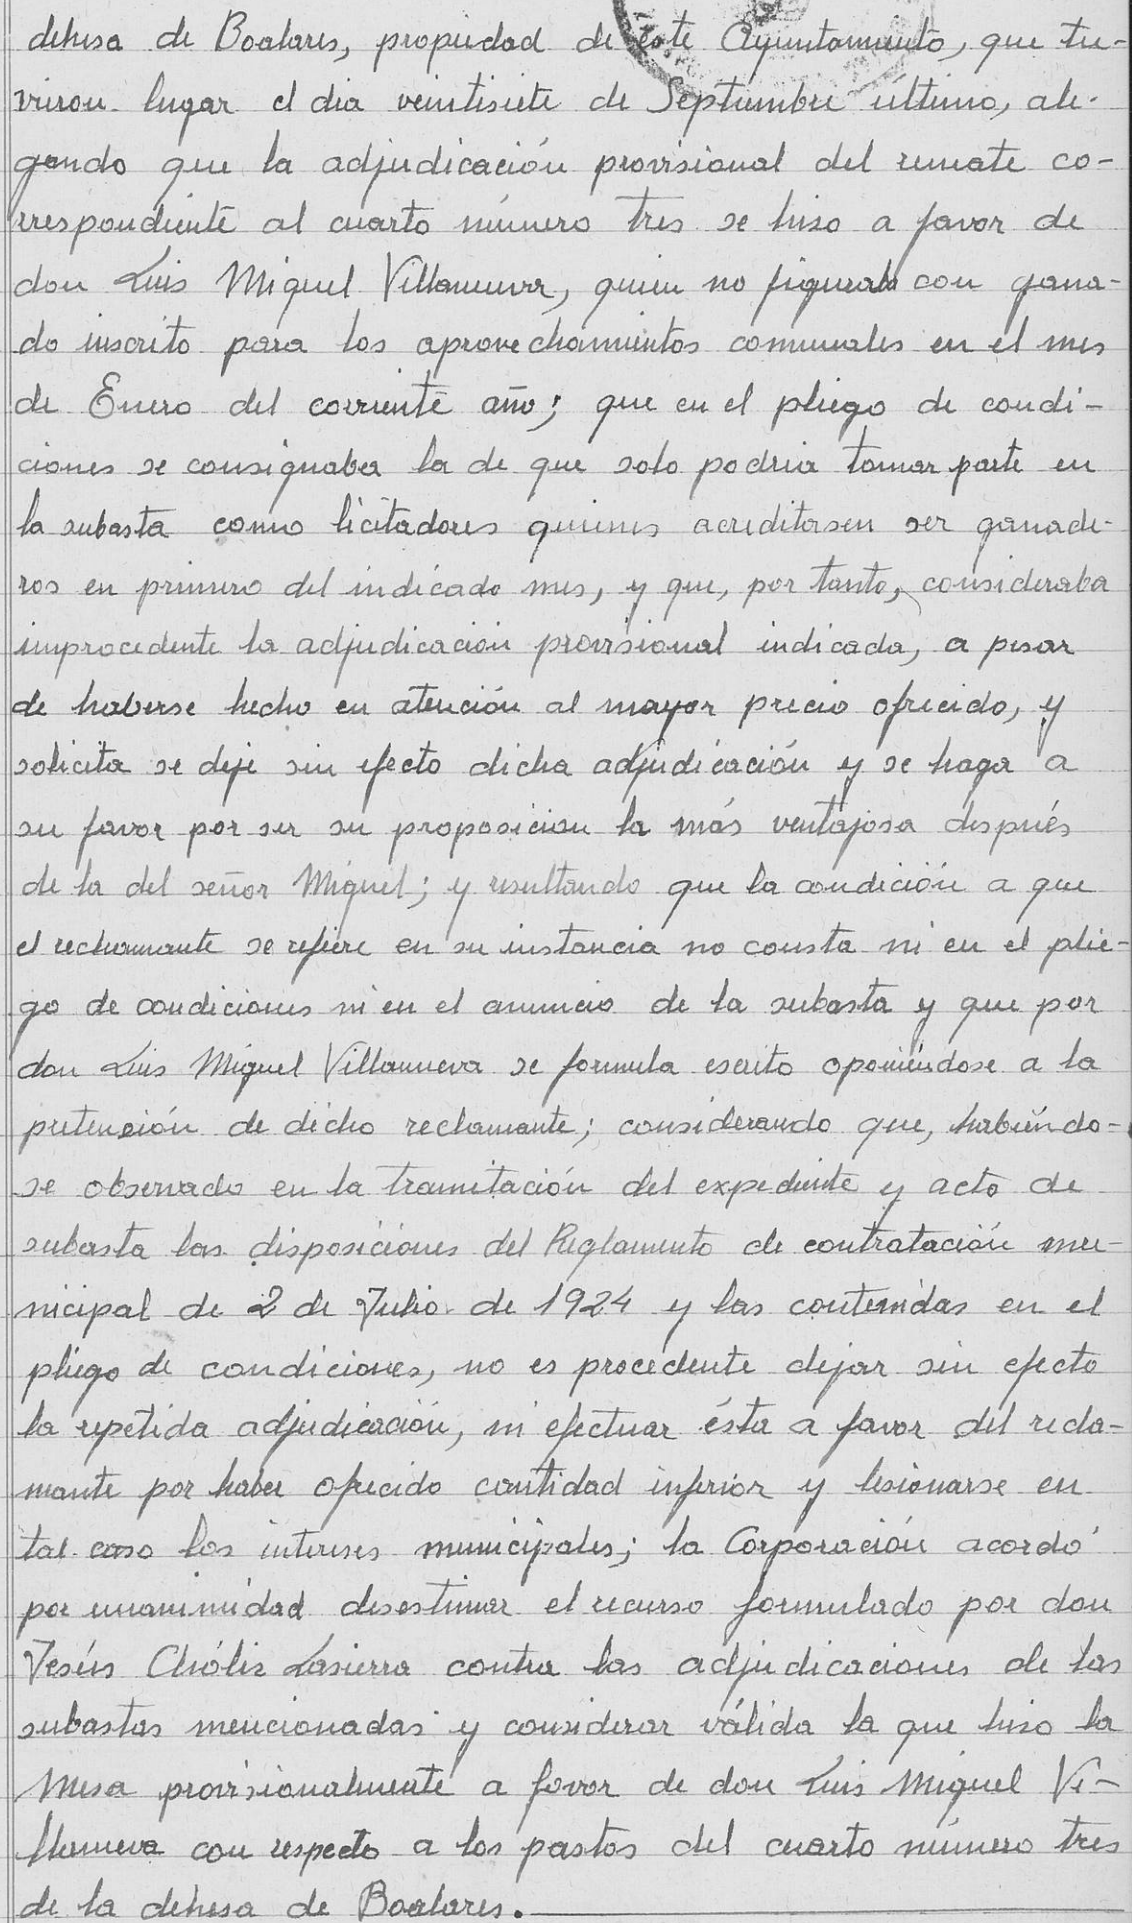 dehesa de Boalares, propiedad de este Ayuntamiento, que tu-
vieron lugar el dia veintisiete de Septiembre último, ale-
gando que la adjudicación provisional del remate co-
rrespondiente al cuarto número tres se hizo a favor de
don Luis Miguel Villanueva, quien no figuraba con gana-
do inscrito para los aprovechamientos comunales en el mes
de Enero del corriente año; que en el pliego de condi-
ciones se consignaba la de que solo podria tomar parte en
la subasta como licitadores quienes acreditasen ser ganade-
ros en primero del indicado mes, y que, por tanto, consideraba
improcedente la adjudicación provisional indicada, a pesar
de haberse hecho en atención al mayor precio ofrecido, y
solicita se deje sin efecto dicha adjudicación y se haga a
su favor por ser su proposicion la más ventajosa después
de la del señor Miguel; y resultando que la condición a que
el reclamante se refiere en su instancia no consta ni en el plie-
go de condiciones ni en el anuncio de la subasta y que por
don Luis Miguel Villanueva se formula escrito oponiéndose a la
pretensión de dicho reclamante; considerando que, habiéndo-
se observado en la tramitación del expediente y acto de
subasta las disposiciones del Reglamento de contratación mu-
nicipal de 2 de Julio de 1924 y las contenidas en el
pliego de condiciones, no es procedente dejar sin efecto
la repetida adjudicación, ni efectuar ésta a favor del recla-
mante por haber ofrecido cantidad inferior y lesionarse en
tal caso los intereses municipales; la Corporación acordó
por unanimidad desestimar el recurso formulado por don
Jesús Chóliz Lasierra contra las adjudicaciones de las
subastas mencionadas y considerar válida la que hizo la
Mesa provisionalmente a favor de don Luis Miguel Vi-
llanueva con respecto a los pastos del cuarto número tres
de la dehesa de Boalares.